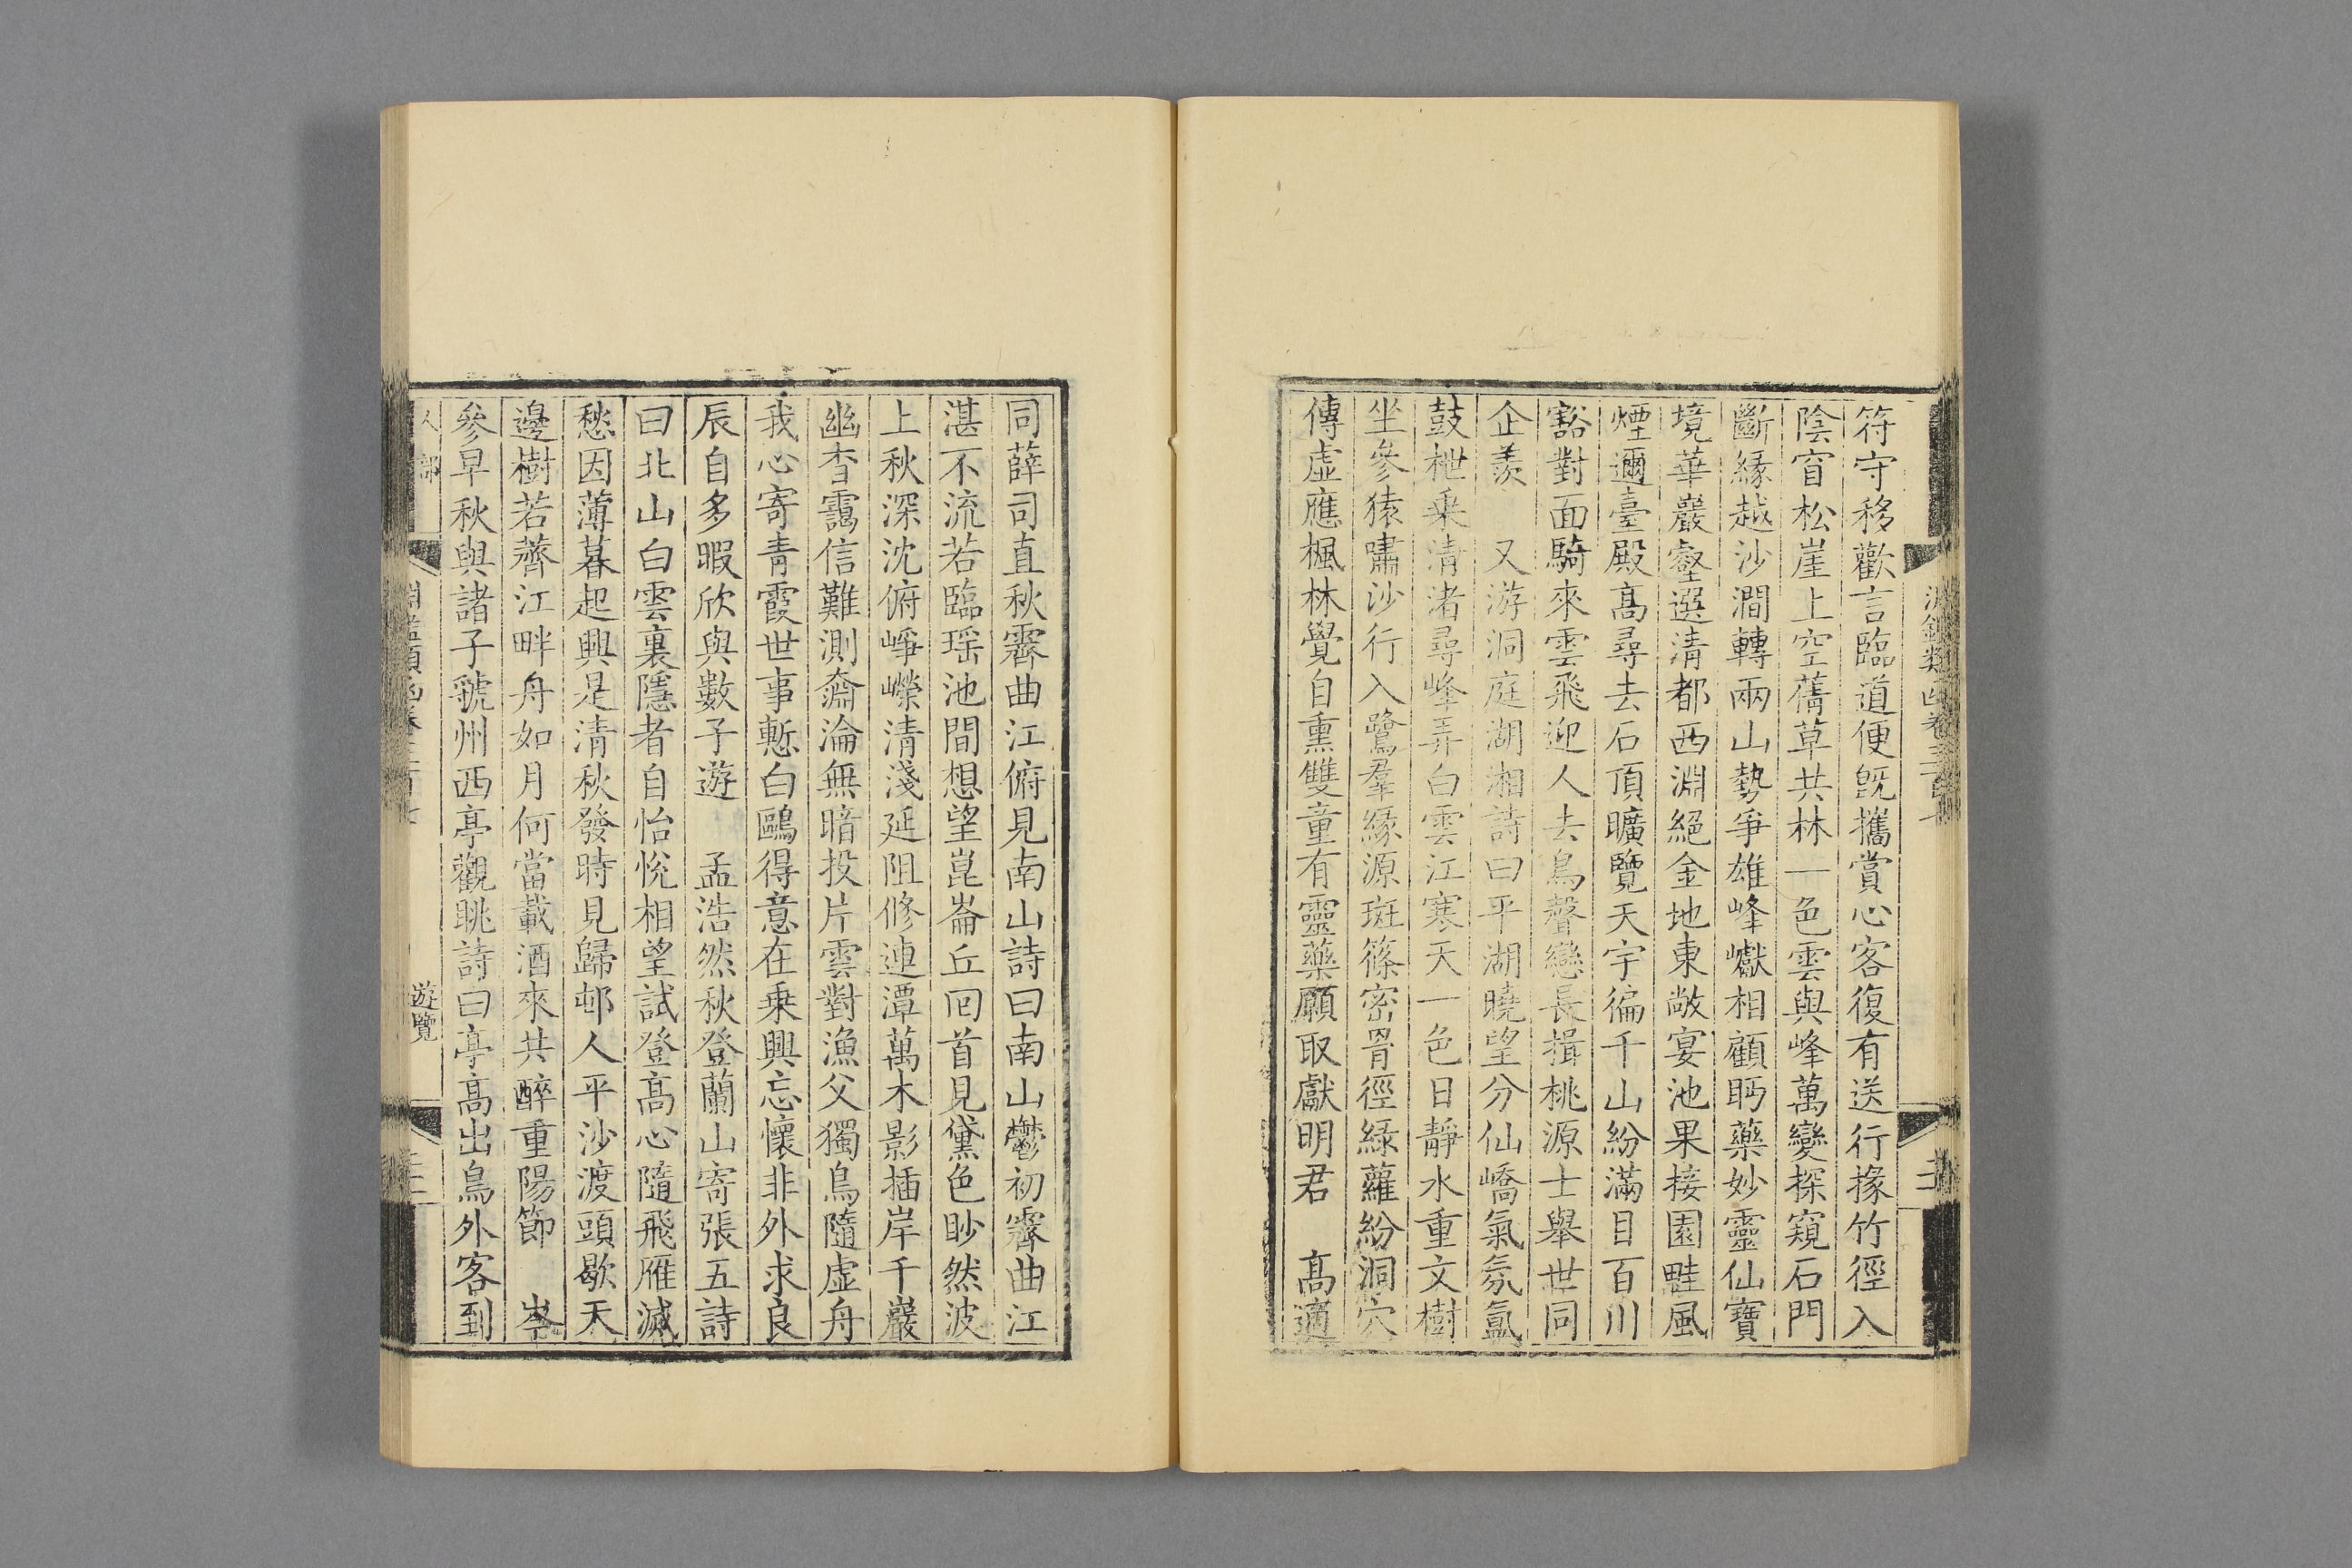 符守移歡言臨道便旣攜賞心客復有送行掾竹徑入
陰窅松崖上空蒨草共林一色雲與峰萬變探窺石門
斷緣越沙澗轉兩山勢爭雄峰巘相顧眄藥妙靈仙寶
境華巖壑選淸都西淵絕金地東敞宴池果接園畦風
煙邇臺殿髙尋去石頂曠覽天宇徧千山紛滿目百川
豁對面騎來雲飛迎人去鳥聲戀長揖桃源士舉世同
企羨　又游洞庭湖湘詩曰平湖曉望分仙嶠氣氛氳
鼓枻乗清渚尋峰弄白雲江寒天一色日靜水重文樹
坐參猿嘯沙行入鷺羣緣源斑篠密罥徑綠蘿紛洞穴
傳虛應楓林覺自熏雙童有靈藥願取獻明君　髙適
同薛司直秋霽曲江俯見南山詩曰南山鬱初霽曲江
湛不流若臨瑶池間想望崑崙丘囘首見黛色眇然波
上秋深沈俯崢嶸清淺延阻修連潭萬木影插岸千巖
幽杳靄信難測奫淪無暗投片雲對漁父獨鳥隨虛舟
我心寄青霞世事慙白鷗得意在乗興忘懷非外求良
辰自多暇欣與數子遊　孟浩然秋登蘭山寄張五詩
曰北山白雲裏隱者自怡悅相望試登髙心隨飛雁滅
愁因薄暮起興是清秋發時見歸邨人平沙渡頭歇天
邊樹若薺江畔舟如月何當載酒來共醉重陽節　岑
參早秋與諸子虢州西亭觀眺詩曰亭髙出鳥外客到
人部
遊覽